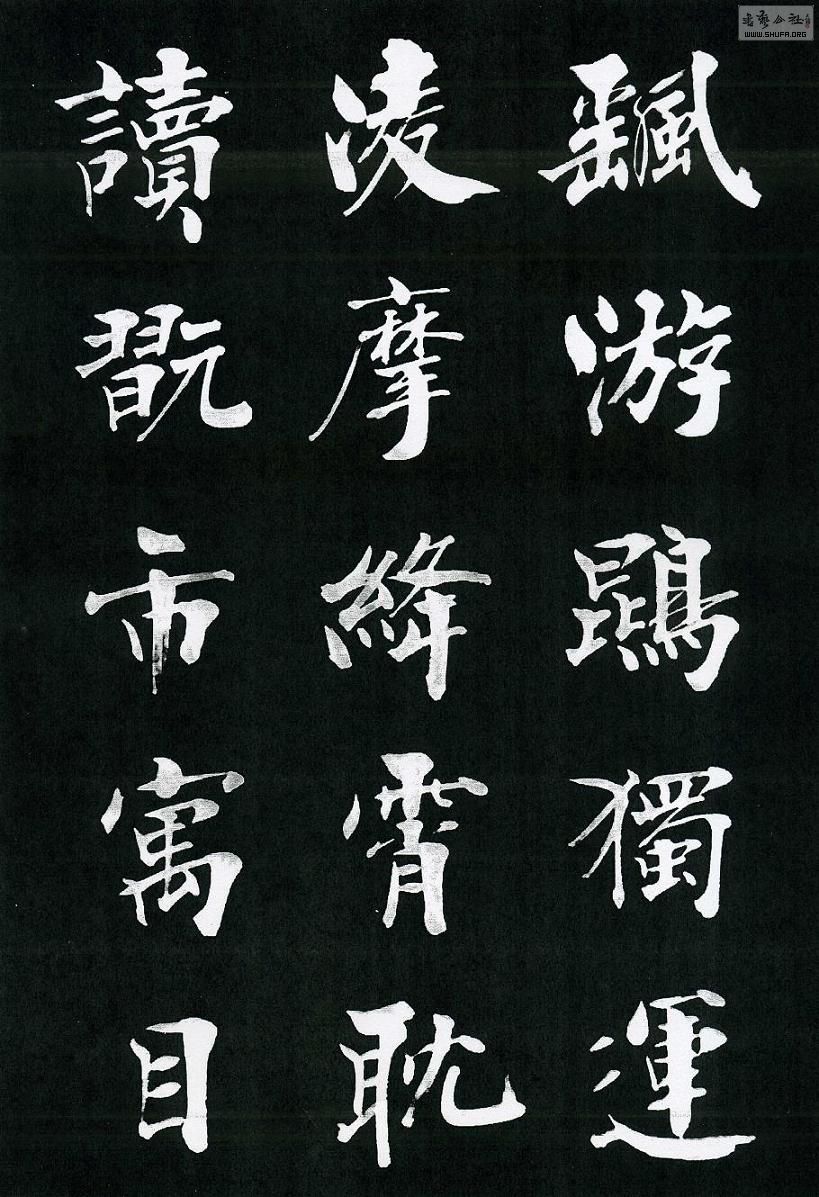 颻游鵾獨運
凌摩絳霄耽
讀翫市寓目
書藝公社
WWW.SHUFA.ORG